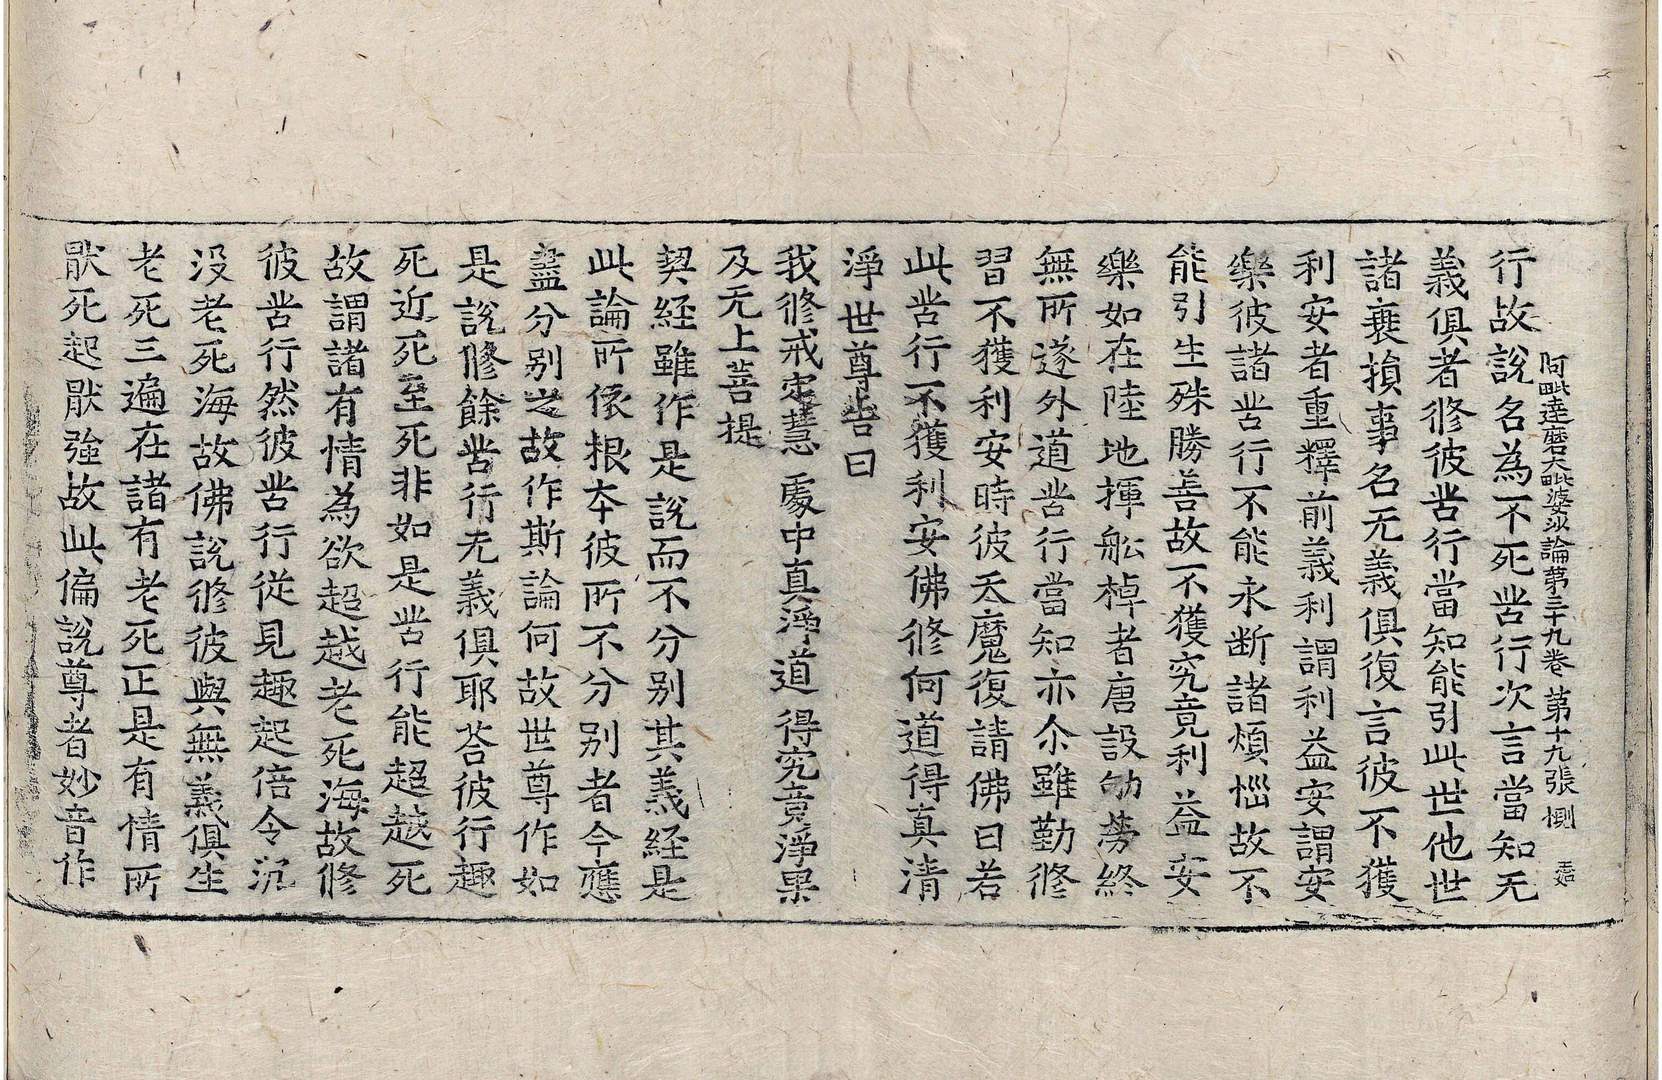 阿毗達磨大毗婆沙論第三十九卷 第十九張 惻
行故說名為不死苦行次言當知无
義俱者修彼苦行當知能引此世他世
諸衰損事名无義俱復言彼不獲
利安者重釋前義利謂利益安謂安
樂彼諸苦行不能永断諸煩惱故不
能引生殊勝善故不獲究竟利益安
樂如在陸地揮舩棹者唐設劬勞終
無所遂外道苦行當知亦尒雖勤修
習不獲利安時彼天魔復請佛曰若
此苦行不獲利安佛修何道得真清
淨世尊告曰
我修戒定慧 處中真淨道 得究竟淨果
及无上菩提
契経雖作是說而不分别其義経是
此論所依根本彼所不分别者今應
盡分别之故作斯論何故世尊作如
是說修餘苦行无義俱耶荅彼行趣
死近死至死非如是苦行能超越死
故謂諸有情為欲超越老死海故修
彼苦行然彼苦行從見趣起倍令沉
没老死海故佛說修彼與無義俱生
老死三遍在諸有老死正是有情所
猒死起猒強故此偏說尊者妙音作